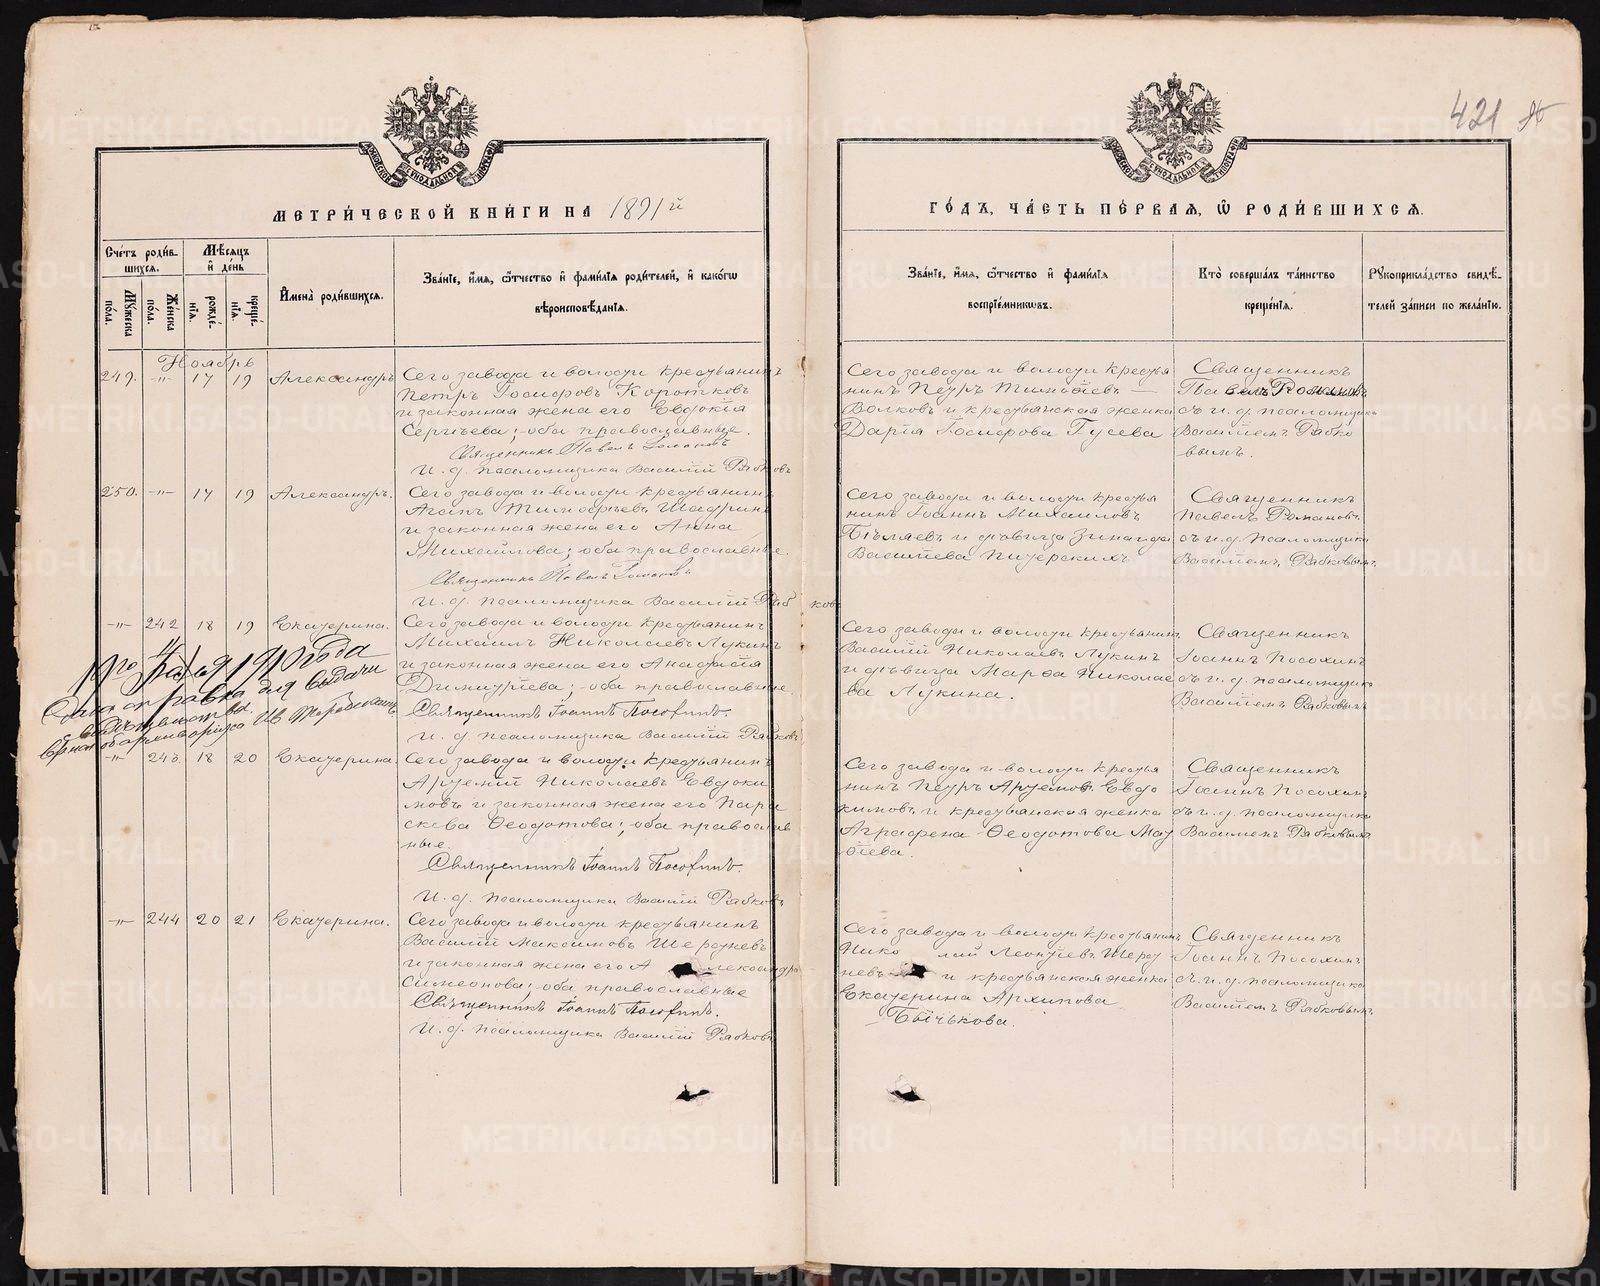 421
МЕТРИ́ЧЕСКОЙ КНИ́ГИ НА 1891 й
ГО́ДЪ, ЧА́СТЬ ПЕ́РВАЯ, Ѡ РОДИ́ВШИХСЯ.
Сче́тъ роди́в-
шихся.
Му́жеска
по́ла.
Же́нска
по́ла.
Мѣ́сяцъ
и́ де́нь
рожде́-
нїя.
креще́-
нїя.
И́мена̀ роди́вшихся.
Зва́нїе, и́мя, ѻ́тчество и́ фами́лїя роди́телей, и́ како́гѡ
вѣроисповѣ́данїя.
Зва́нїе, и́мя, ѻ́тчество и́ фами́лїя
воспрїе́мникѡвъ.
Кто̀ соверша́лъ та́инство
креще́нїя.
Рꙋкоприкла́дство свидѣ́-
телей за́писи по жела́нїю.
Ноябрь
249. -"- 17 19 Александръ
Сего завода и волости крестьянинъ
Петръ Іосифовъ Коротковъ
и законная жена его Евдокія
Сергѣева; оба православные.
Священникъ Павелъ Романовъ
И. д. псаломщика Василій Рябковъ
Сего завода и волости крестья
нинъ Петръ Тимофѣевъ
Волковъ и крестьянская женка
Дарія Іосифова Гусева
Священникъ
Павелъ Романовъ
съ и. д. псаломщика
Василіемъ Рябко
вымъ.
250. -"- 17 19 Александръ.
Сего завода и волости крестьянинъ
Агапъ Тимофѣевъ Шадринъ
и законная жена его Анна
Михайлова; оба православные.
Священникъ Павелъ Романовъ
И. д. псаломщика Василій Рябковъ
Сего завода и волости крестья
нинъ Іоаннъ Михаиловъ
Бѣляевъ и дѣвица Зинаида
Василіева Питерскихъ
Священникъ
Павелъ Романовъ
съ и. д. псаломщика
Василіемъ Рябковымъ.
-"- 242 18 19 Екатерина.
Сего завода и волости крестьянинъ
Михаилъ Николаевъ Лукинъ
и законная жена его Анастасія
Димитріева; оба православные
Священникъ Іоаннъ Посохинъ.
И. д. псаломщика Василій Рябковъ
Сего завода и волости крестьянинъ
Василій Николаевъ Лукинъ
и дѣвица Марѳа Николае
ва Лукина.
Священникъ
Іоаннъ Посохинъ
съ и. д. псаломщика
Василіемъ Рябковымъ
1910 года
справка для выдачи
-"- 243. 18 20 Екатерина.
Сего завода и волости крестьянинъ
Артемій Николаевъ Евдоки
мовъ и законная жена его Пара
скева Ѳеодотова; оба православ
ные.
Священникъ Іоаннъ Посохинъ.
И. д. псаломщика Василій Рябковъ
Сего завода и волости крестья
нинъ Петръ Артемовъ Евдо
кимовъ и крестьянская женка
Аграфена Ѳеодотова Мат
ѳіева.
Священникъ
Іоаннъ Посохинъ
съ и. д. псаломщика
Василіемъ Рябковымъ
-"- 244 20 21 Екатерина.
Сего завода и волости крестьянинъ
Василій Максимовъ Шерстневъ
и законная жена его Александра
Симеонова; оба православные
Священникъ Іоаннъ Посохинъ.
И. д. псаломщика Василій Рябковъ
Сего завода и волости крестьянинъ
Николай Леонтіевъ Шерст
невъ и крестьянская женка
Екатерина Архипова
Бычькова.
Священникъ
Іоаннъ Посохинъ
съ и. д. псаломщика
Василіемъ Рябковымъ
METRIKI.GASO-URAL.RU